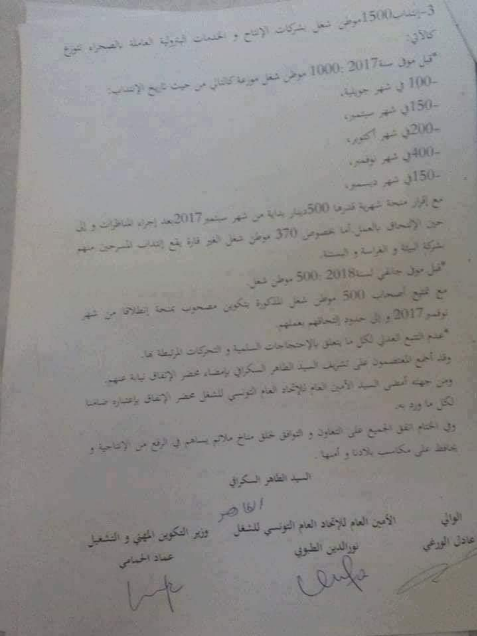 3-إنتداب 1500موطن شغل بشركات الإنتاج و الخدمات البترولية العاملة بالصحراء تتوزع
كالآتي:
*قبل موفى سنة2017 :1000 موطن شغل موزعة كالتالي من حيث تاريخ الإنتداب:
-100 في شهر جويلية،
-150في شهر سبتمبر،
-200في شهر أكتوبر،
-400في شهر نوفمبر،
-150في شهر ديسمبر،
مع إقرار منحة شهرية قدرها 500دينار بداية من شهر سبتمبر2017بعد إجراء المناظرات و إلى
حين الإلتحاق بالعمل.أما بخصوص 370 موطن شغل الغير قارة يقع إنتداب المسرحين منهم
بشركة البيئة و الغراسة و البستنة.
*قبل موفى جانفي لسنة2018 :500 موطن شغل
مع تمتيع أصحاب 500 موطن شغل المذكورة بتكوين مصحوب بمنحة إنطلاقا من شهر
نوفمبر 2017 و إلى حدود إلتحاقهم بعملهم.
*عدم التتبع العدلي لكل ما يتعلق بالإحتجاجات السلمية و التحركات المرتبطة بها.
وقد أجمع المعتصمون على تشريف السيد الطاهر السكرافي بإمضاء محضر الإتفاق نيابة عنهم.
ومن جهته أمضى السيد الأمين العام للإتحاد العام التونسي للشغل محضر الإتفاق بإعتباره ضامنا
لكل ما ورد به.
وفي الختام اتفق الجميع على التعاون و التوافق خلق مناخ ملائم يساهم في الرفع من الإنتاجية و
يحافظ على مكاسب بلادنا و أمنها .
السيد الطاهر السكرافي
الوالي الأمين العام للإتحاد العام التونسي للشغل وزير التكوين المهني و التشغيل
عادل الورغي نورالدين الطبوبي عماد الحمامي